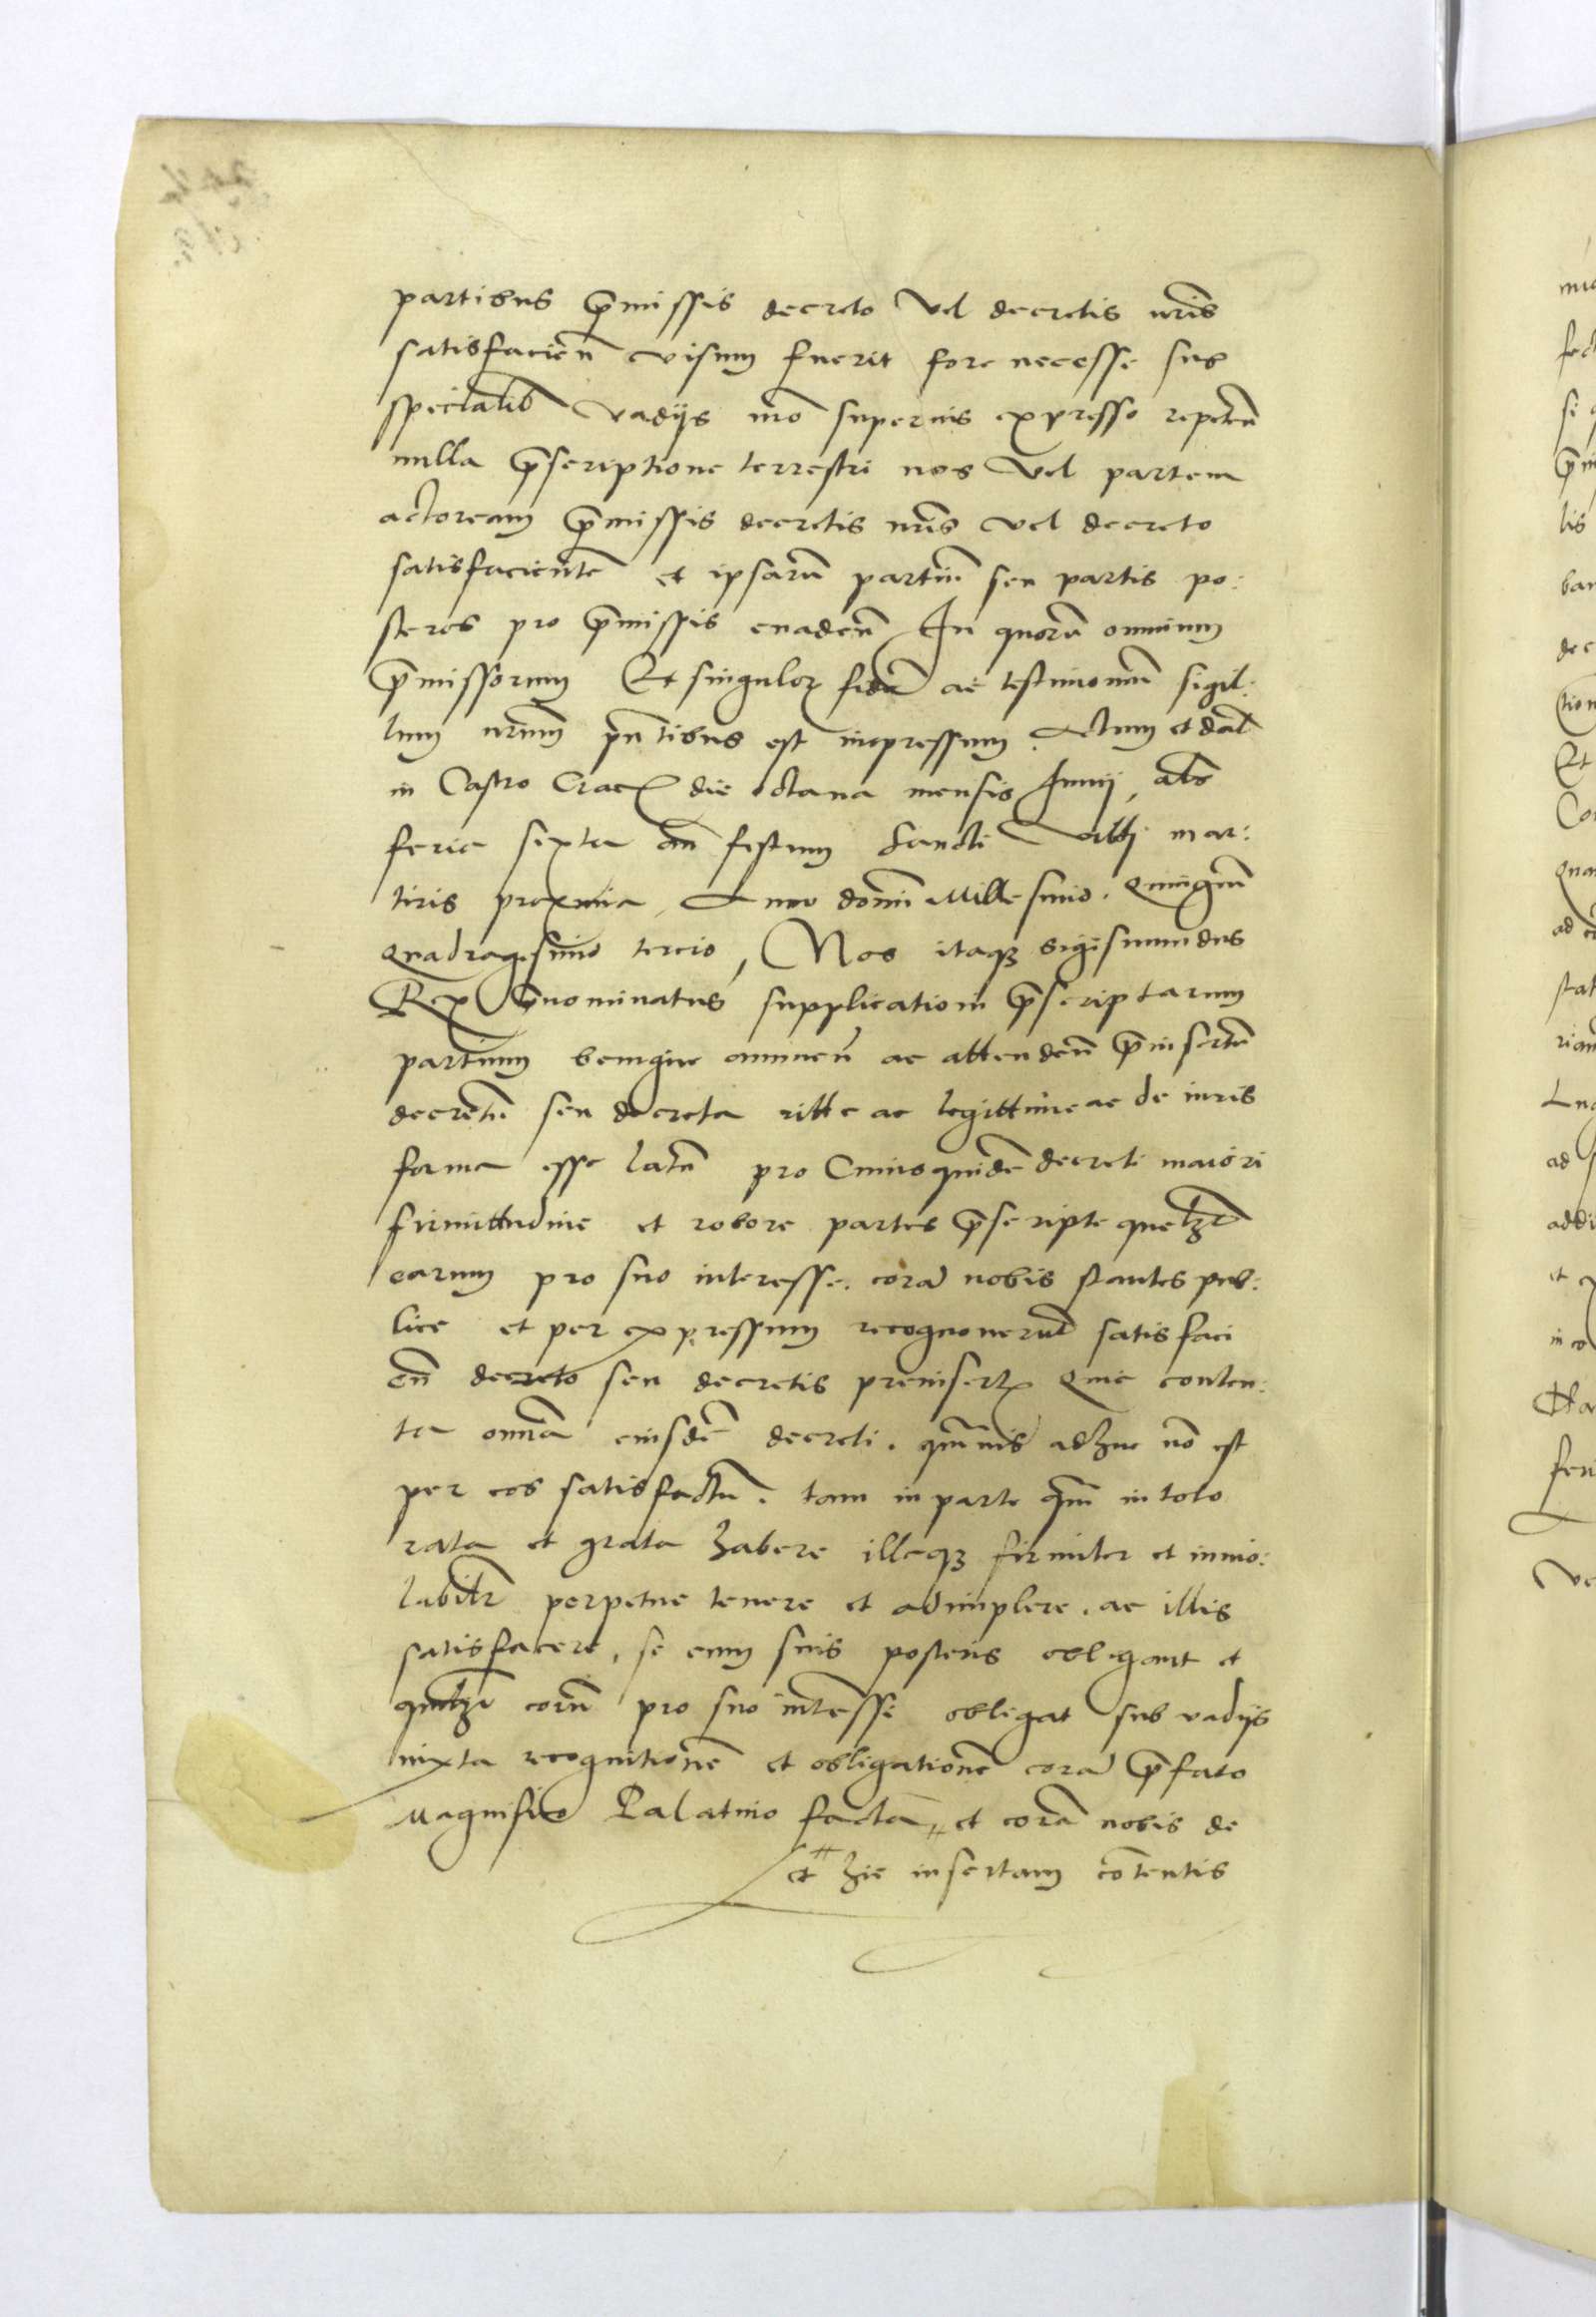 partibus p̄missis decreto vel decretis nr̄is
satisfacien̄ visum fuerit fore necesse sub
specialib̄ vadijs mō superius expresso repeten̄
nulla p̄scriptione terrestri nos vel partem
actoream p̄missis decretis nr̄is vel decreto
satisfacientē et ipsarū partiū seu partis po:
steros pro p̄missis evaden̄ In quorū omnium
p̄missorum Et singulor̄ fidē ac testimoniū sigil:
lum nr̄um pn̄tibus est impressum. Actum et dat̄
in Castro Crac̄ die octava mensis Junij, al̄s
feria sexta an̄ festum Sancti Viti mar:
tiris proxima, Anno domī Millesimo. Quingēm̄
Quadragesimo tercio, Nos itaqȝ Sigismundus
Rex p̄nominatus supplicationi p̄scriptarum
partium benigne annuen̄ ac attenden̄ p̄insertū
decretū seu decreta ritte ac legittime ac de iuris
forma esse latū pro Cuius quidē decreti maiori
firmittudine et robore partes p̄scripte quelȝt̄
earum pro suo interesse. corā nobis stantes pub:
lice et per expressum recognoverūt satisfaci
en̄ decreto seu decretis preinsert̄ Quia conten:
ta omnia eiusdē decreti. quāvis adhuc nō est
per eos satisfactū. tam in parte qm̄ in toto
rata et grata habere illaqȝ firmiter et invio:
labilr̄ perpetue tenere et adimplere. ac illis
satisfacere, se cum suis posteris obligant et
quilȝt̄ eorū pro suo interesse obligat sub vadijs
iuxta recognitionē et obligationē corā p̄fato
Magnifico Palatino factā, et corā nobis de
et hic insertam cōtentis